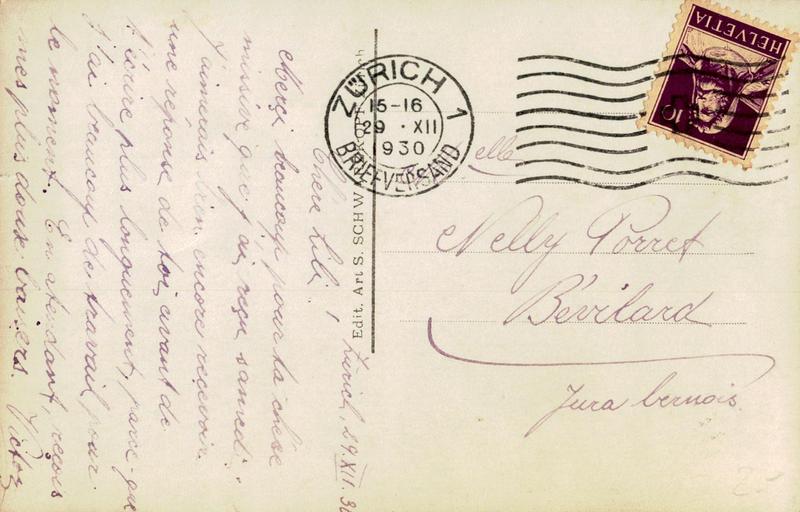 Zurich, 29.XII.30
Chère Lili!
Merci beaucoup pour ta chère
missive que j'ai reçue samedi.
J'aimerais bien encore recevoir
une réponse de toi avant de
t'écrire plus longuement, parce que
j'ai beaucoup de travail pour
le moment. En atendant, reçois
mes plus doux baisers. Victor
Edit. Art S. SCHW
ZÜRICH 1
15-16
29 · XII
1930
BRIEFVERSAND
HELVETIA
10
elle
Nelly Porret
Bévilard
Jura bernois.
2.-